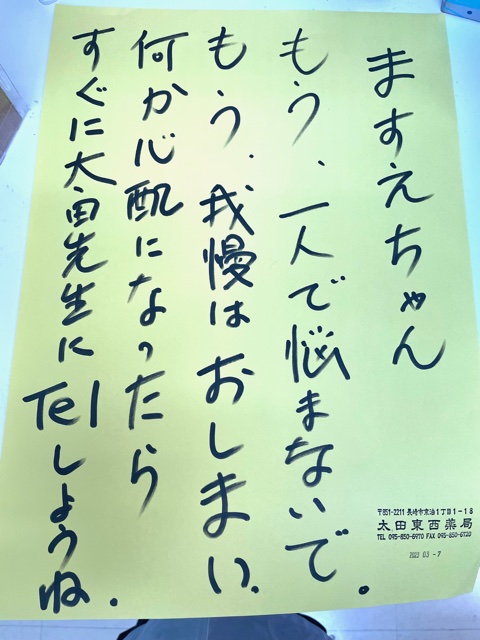 ますえちゃん
もう、一人で悩まないで。
もう、我慢はおしまい。
何か心配になったら
すぐに太田先生に
Telしようね.
〒851-2211 長崎市京泊1丁目1-18
太田東西薬局
TEL 095-850-6970 FAX 095-850-6720
2023 03 -7